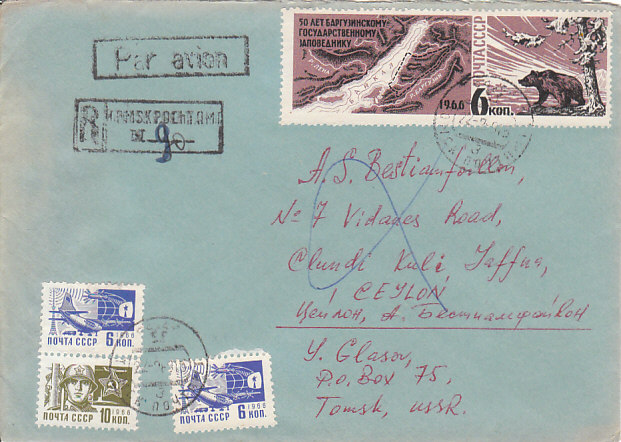 Par avion
R
50 ЛЕТ БАРГУЗИНСКОМУ
ГОСУДАРСТВЕННОМУ
ЗАПОВЕДНИКУ
1966
ПОЧТА СССР
6 КОП.
A. S. Bestiampillon,
No 7 Vidanes Road,
Clundi Kuli Jaffna,
CEYLON,
Цейлон, А. Бестиампфайкон
Y. Glasov,
P.O. Box 75,
Tomsk, USSR.
1966
ПОЧТА СССР 6 КОП.
1966
ПОЧТА СССР 10 КОП.
1966
ПОЧТА СССР 6 КОП.